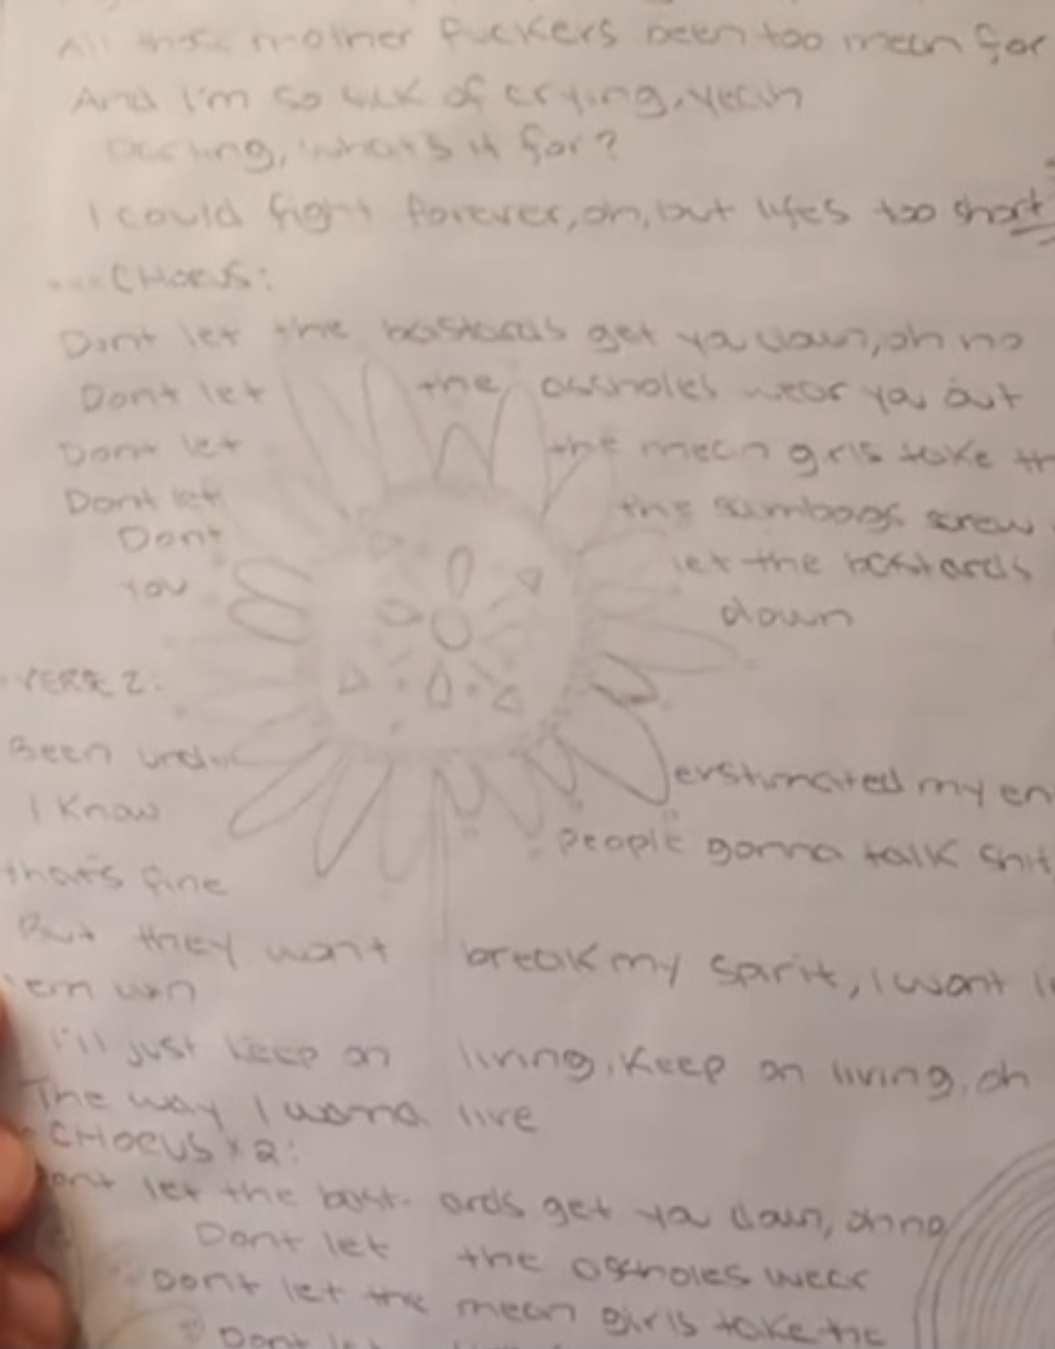 All those mother fuckers been too mean for
And I'm so sick of crying, yeah
Darling, what's it for?
I could fight forever, oh, but lifes too short
CHORUS:
Dont let the bastards get ya down, oh no
Dont let the assholes wear ya out
Dont let the mean girls take th
Dont let the scumbags screw
Dont let the bastards
You down
VERSE 2:
Been understimated my en
I Know people gonna talk shit
that's fine
But they wont break my spirit, I wont l
em win
I'll just keep on living, Keep on living, oh
The way I wanna live
CHORUS x 2:
Dont let the bastards get ya down, ohno
Dont let the assholes wear
Dont let the mean girls take the
Dont let